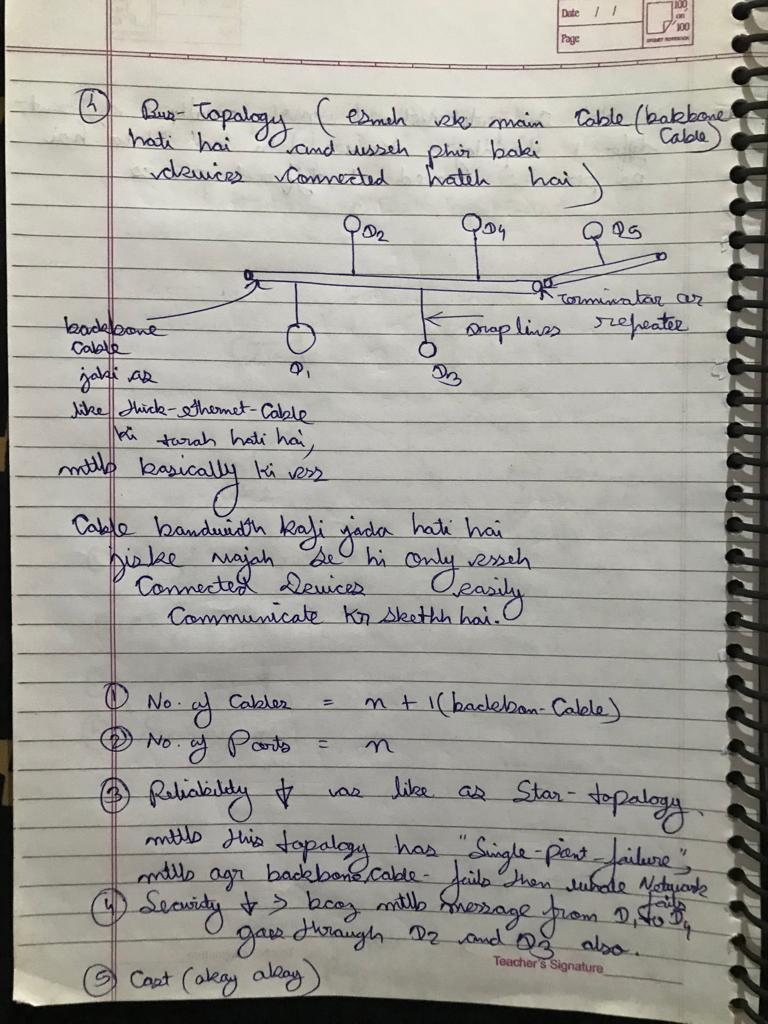 Date / /
Page
100
on
100
④ Bus-Topalogy ( esmeh ek main Cable (bakbone
Cable)
hoti hai and usseh phir baki
devices Connected hoteh hai )
D2
D4
D5
terminator or
repeater
backbone
Cable
Drop lines
D1
D3
joki as
like thick-ethernet-Cable
ki tarah hoti hai,
mtlb basically ki ess
Cable bandwidth kafi jada hoti hai
jiske wajah se hi only esseh
Connected Devices easily
Communicate kr skethh hai.
① No. of Cables = n + 1(backbon-Cable)
② No. of Ports = n
③ Reliability ↓ as like as Star-topalogy.
mtlb this topalogy has "Single-point-failure",
mtlb agr backbone Cable- fails then whole Network
fails
④ Security ↓ > bcoz mtlb message from D1 to D4
goes through D2 and D3 also.
⑤ Cost (okay okay)
Teacher's Signature